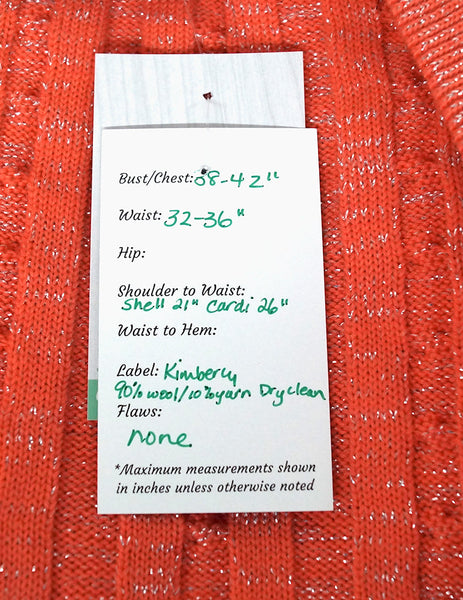 Bust/Chest: 38-42"
Waist: 32-36"
Hip:
Shoulder to Waist:
Shell 21" Cardi 26"
Waist to Hem:
Label: Kimberly
90% wool/10% yarn Dryclean
Flaws:
none
*Maximum measurements shown
in inches unless otherwise noted